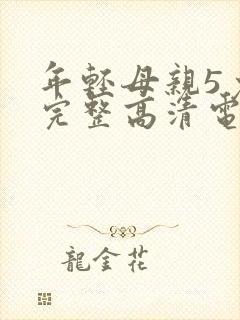 年輕母親5
完整高清電
龍金花